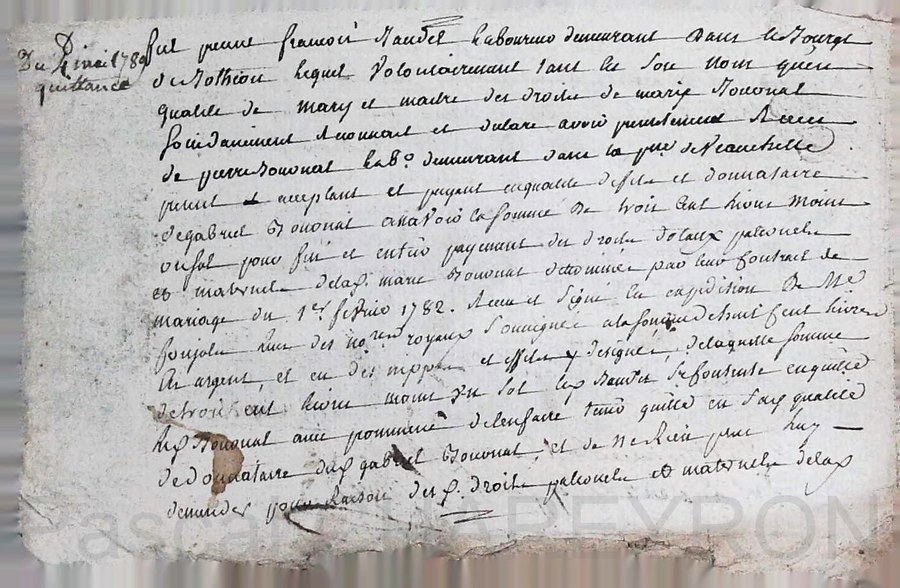 Du 4 mai 1789
quittance
fut present francois Naudet laboureur demeurant dans le Bourg
du Botheon lequel volontairement tant en son nom qu'en
qualité de mary et maitre des droits de marie Bouonat
solidairement reconnait et declare avoir presentement Receu
de pierre Bouonat lab.r demeurant dans la p.sse de
present et acceptant et payant en qualité de fils et donnataire
de gabriel Bouonat a savoir la somme de trois cent livres moins
un sol pour fin et entier payement des droits légaux paternels
et maternels de lad. marie Bouonat determinés par leur contrat de
mariage du 1er février 1782. Receu et signé en expedition de Me
l'un des no.res royaux soussignés a la somme de huit cent livres
en argent, et en des nippes et effets y designés, de laquelle somme
de trois cent livres moins un sol led. Naudet se contente en quitte
led. Bouonat avec promesse de l'en faire tenir quitte en sad. qualité
de donnataire dud. gabriel Bouonat, et de ne Rien plus luy
demander pour Raison desd. droits paternels et maternels de lad.
Pascale HAREYRON